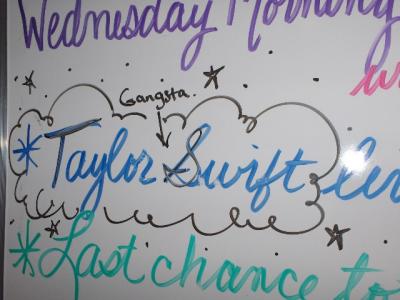 Wednesday Morning
Gangsta.
* Taylor Swift
* Last chance to